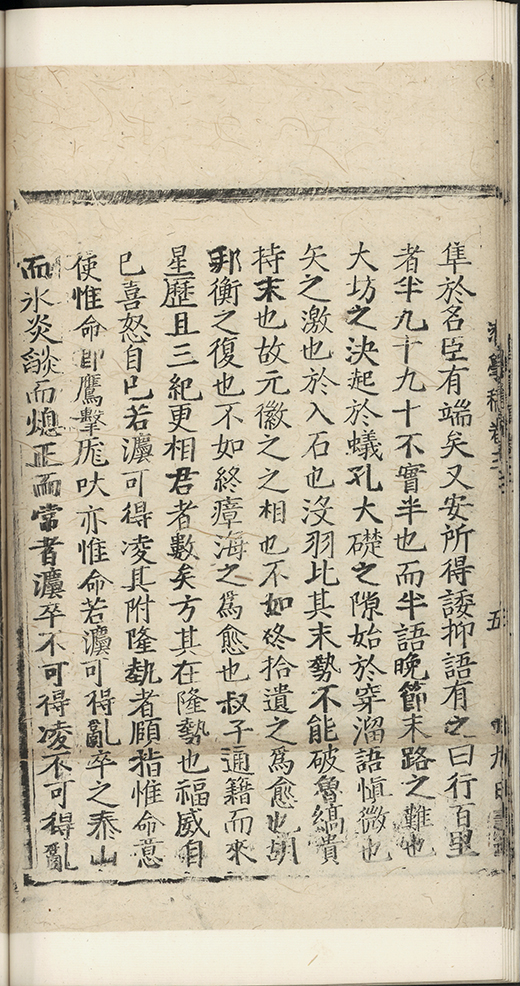 隼於名臣有端矣又安所得諉抑語有之曰行百里
者半九十九十不實半也而半語晩節末路之難也
大坊之決起於蟻孔大礎之隙始於穿溜語愼微也
矢之激也於入石也沒羽比其末勢不能破魯縞貴
持末也故元徽之之相也不如終拾遺之爲愈也胡
邦衡之復也不如終瘴海之爲愈也叔子通籍而來
星歷且三紀更相君者數矣方其在隆勢也福威自
已喜怒自已若瀛可得凌其附隆埶者頤指惟命意
使惟命即鷹擊厖吠亦惟命若瀛可得亂卒之泰山
而氷炎燄而熄正而常者瀛卒不可得凌不可得亂
五